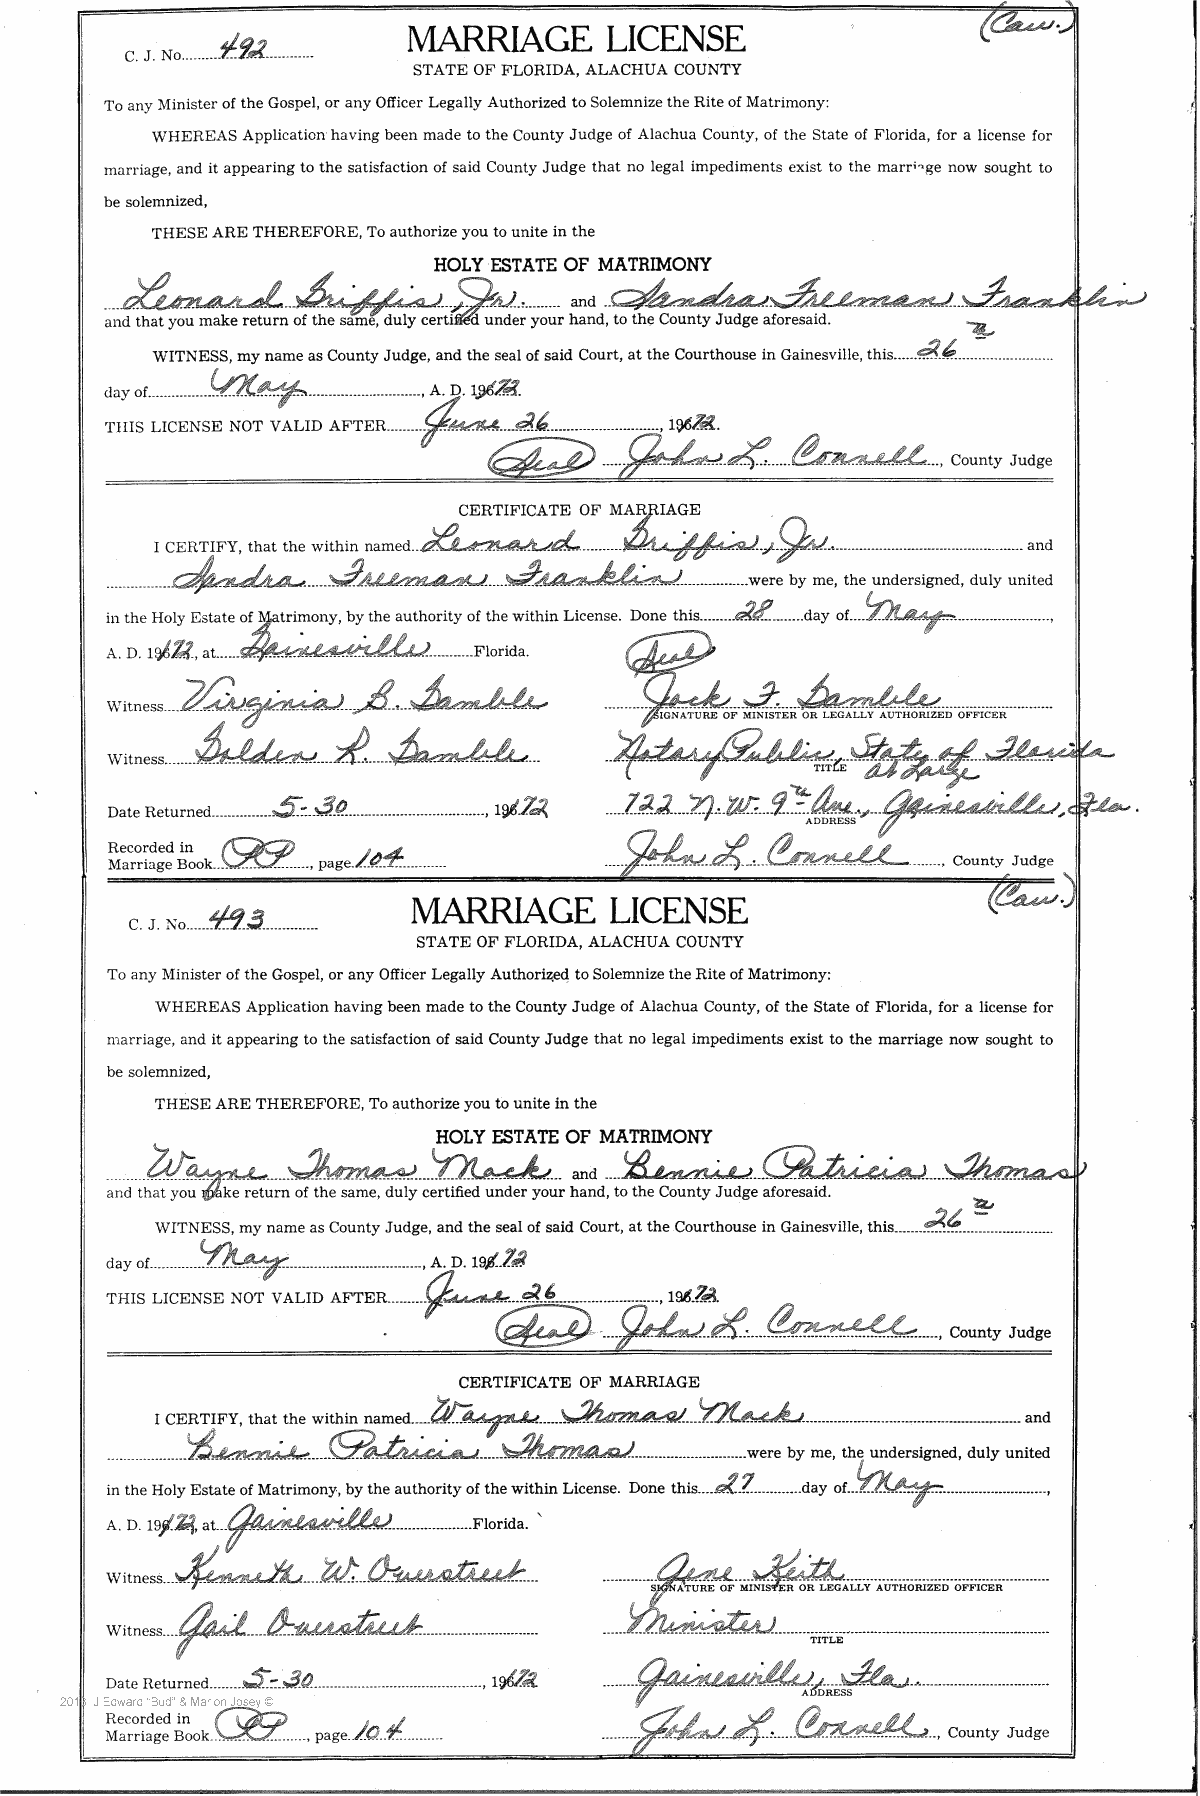 (Cau.)
C. J. No. 492
MARRIAGE LICENSE
STATE OF FLORIDA, ALACHUA COUNTY
To any Minister of the Gospel, or any Officer Legally Authorized to Solemnize the Rite of Matrimony:
WHEREAS Application having been made to the County Judge of Alachua County, of the State of Florida, for a license for
marriage, and it appearing to the satisfaction of said County Judge that no legal impediments exist to the marriage now sought to
be solemnized,
THESE ARE THEREFORE, To authorize you to unite in the
HOLY ESTATE OF MATRIMONY
Leonard Griffis, Jr. and Sandra Freeman Franklin
and that you make return of the same, duly certified under your hand, to the County Judge aforesaid.
WITNESS, my name as County Judge, and the seal of said Court, at the Courthouse in Gainesville, this 26th
day of May, A. D. 1972.
THIS LICENSE NOT VALID AFTER June 26, 1972.
(Seal) John L. Connell, County Judge
CERTIFICATE OF MARRIAGE
I CERTIFY, that the within named Leonard Griffis, Jr. and
Sandra Freeman Franklin were by me, the undersigned, duly united
in the Holy Estate of Matrimony, by the authority of the within License. Done this 28 day of May,
A. D. 1972, at Gainesville Florida. (Seal)
Witness Virginia B. Gamble Jack F. Gamble
SIGNATURE OF MINISTER OR LEGALLY AUTHORIZED OFFICER
Witness Golden R. Gamble Notary Public, State of Florida
TITLE at Large
Date Returned 5-30, 1972 722 N.W. 9th Ave., Gainesville, Fla.
ADDRESS
Recorded in
Marriage Book PP, page 104 John L. Connell, County Judge
(Cau.)
C. J. No. 493
MARRIAGE LICENSE
STATE OF FLORIDA, ALACHUA COUNTY
To any Minister of the Gospel, or any Officer Legally Authorized to Solemnize the Rite of Matrimony:
WHEREAS Application having been made to the County Judge of Alachua County, of the State of Florida, for a license for
marriage, and it appearing to the satisfaction of said County Judge that no legal impediments exist to the marriage now sought to
be solemnized,
THESE ARE THEREFORE, To authorize you to unite in the
HOLY ESTATE OF MATRIMONY
Wayne Thomas Mack and Bennie Patricia Thomas
and that you make return of the same, duly certified under your hand, to the County Judge aforesaid.
WITNESS, my name as County Judge, and the seal of said Court, at the Courthouse in Gainesville, this 26th
day of May, A. D. 1972
THIS LICENSE NOT VALID AFTER June 26, 1972
(Seal) John L. Connell, County Judge
CERTIFICATE OF MARRIAGE
I CERTIFY, that the within named Wayne Thomas Mack and
Bennie Patricia Thomas were by me, the undersigned, duly united
in the Holy Estate of Matrimony, by the authority of the within License. Done this 27 day of May,
A. D. 1972, at Gainesville Florida.
Witness Kenneth W. Overstreet Gene Keith
SIGNATURE OF MINISTER OR LEGALLY AUTHORIZED OFFICER
Witness Gail Overstreet Minister
TITLE
Date Returned 5-30, 1972 Gainesville, Fla.
ADDRESS
J Edward "Bud" & Marion Josey ©
Recorded in
Marriage Book PP, page 104 John L. Connell, County Judge